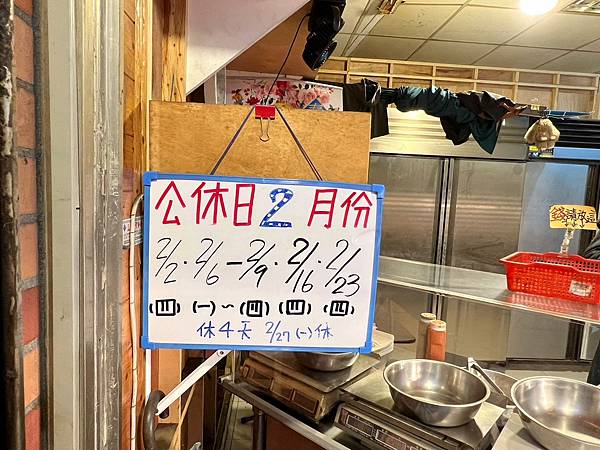 公休日2月份
2/2·2/6－2/9·2/16·2/23
(四) (一)～(四)(四)(四)
休4天 2/27(一)休
錢請放這